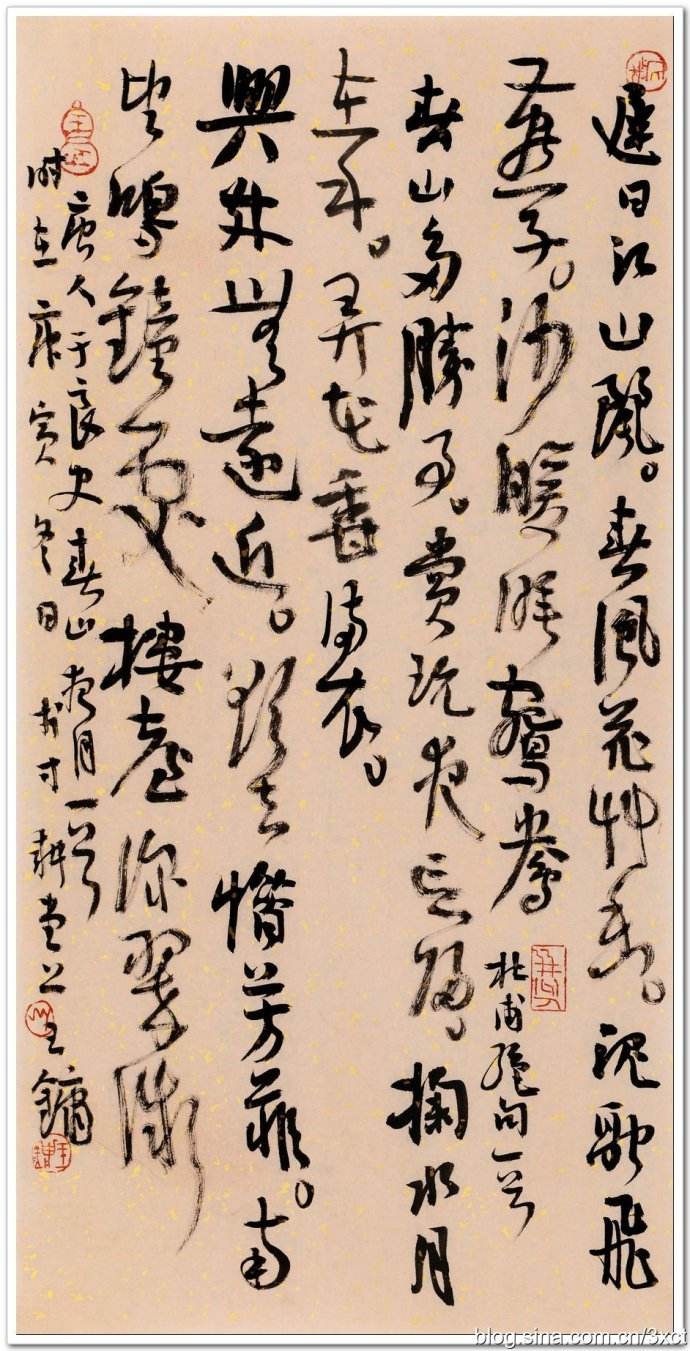 遲日江山麗。春風花草香。泥融飛
又燕子。沙暖睡鴛鴦
杜甫絕句一首
春山多勝事。賞玩夜忘歸。掬水月
在手。弄花香滿衣。
興來無遠近。欲去惜芳菲。南
望鳴鐘處樓臺深翠微
唐人于良史春山夜月一首
时在庚寅冬日於寸耕堂上王鏞
blog.sina.com.cn/3xct